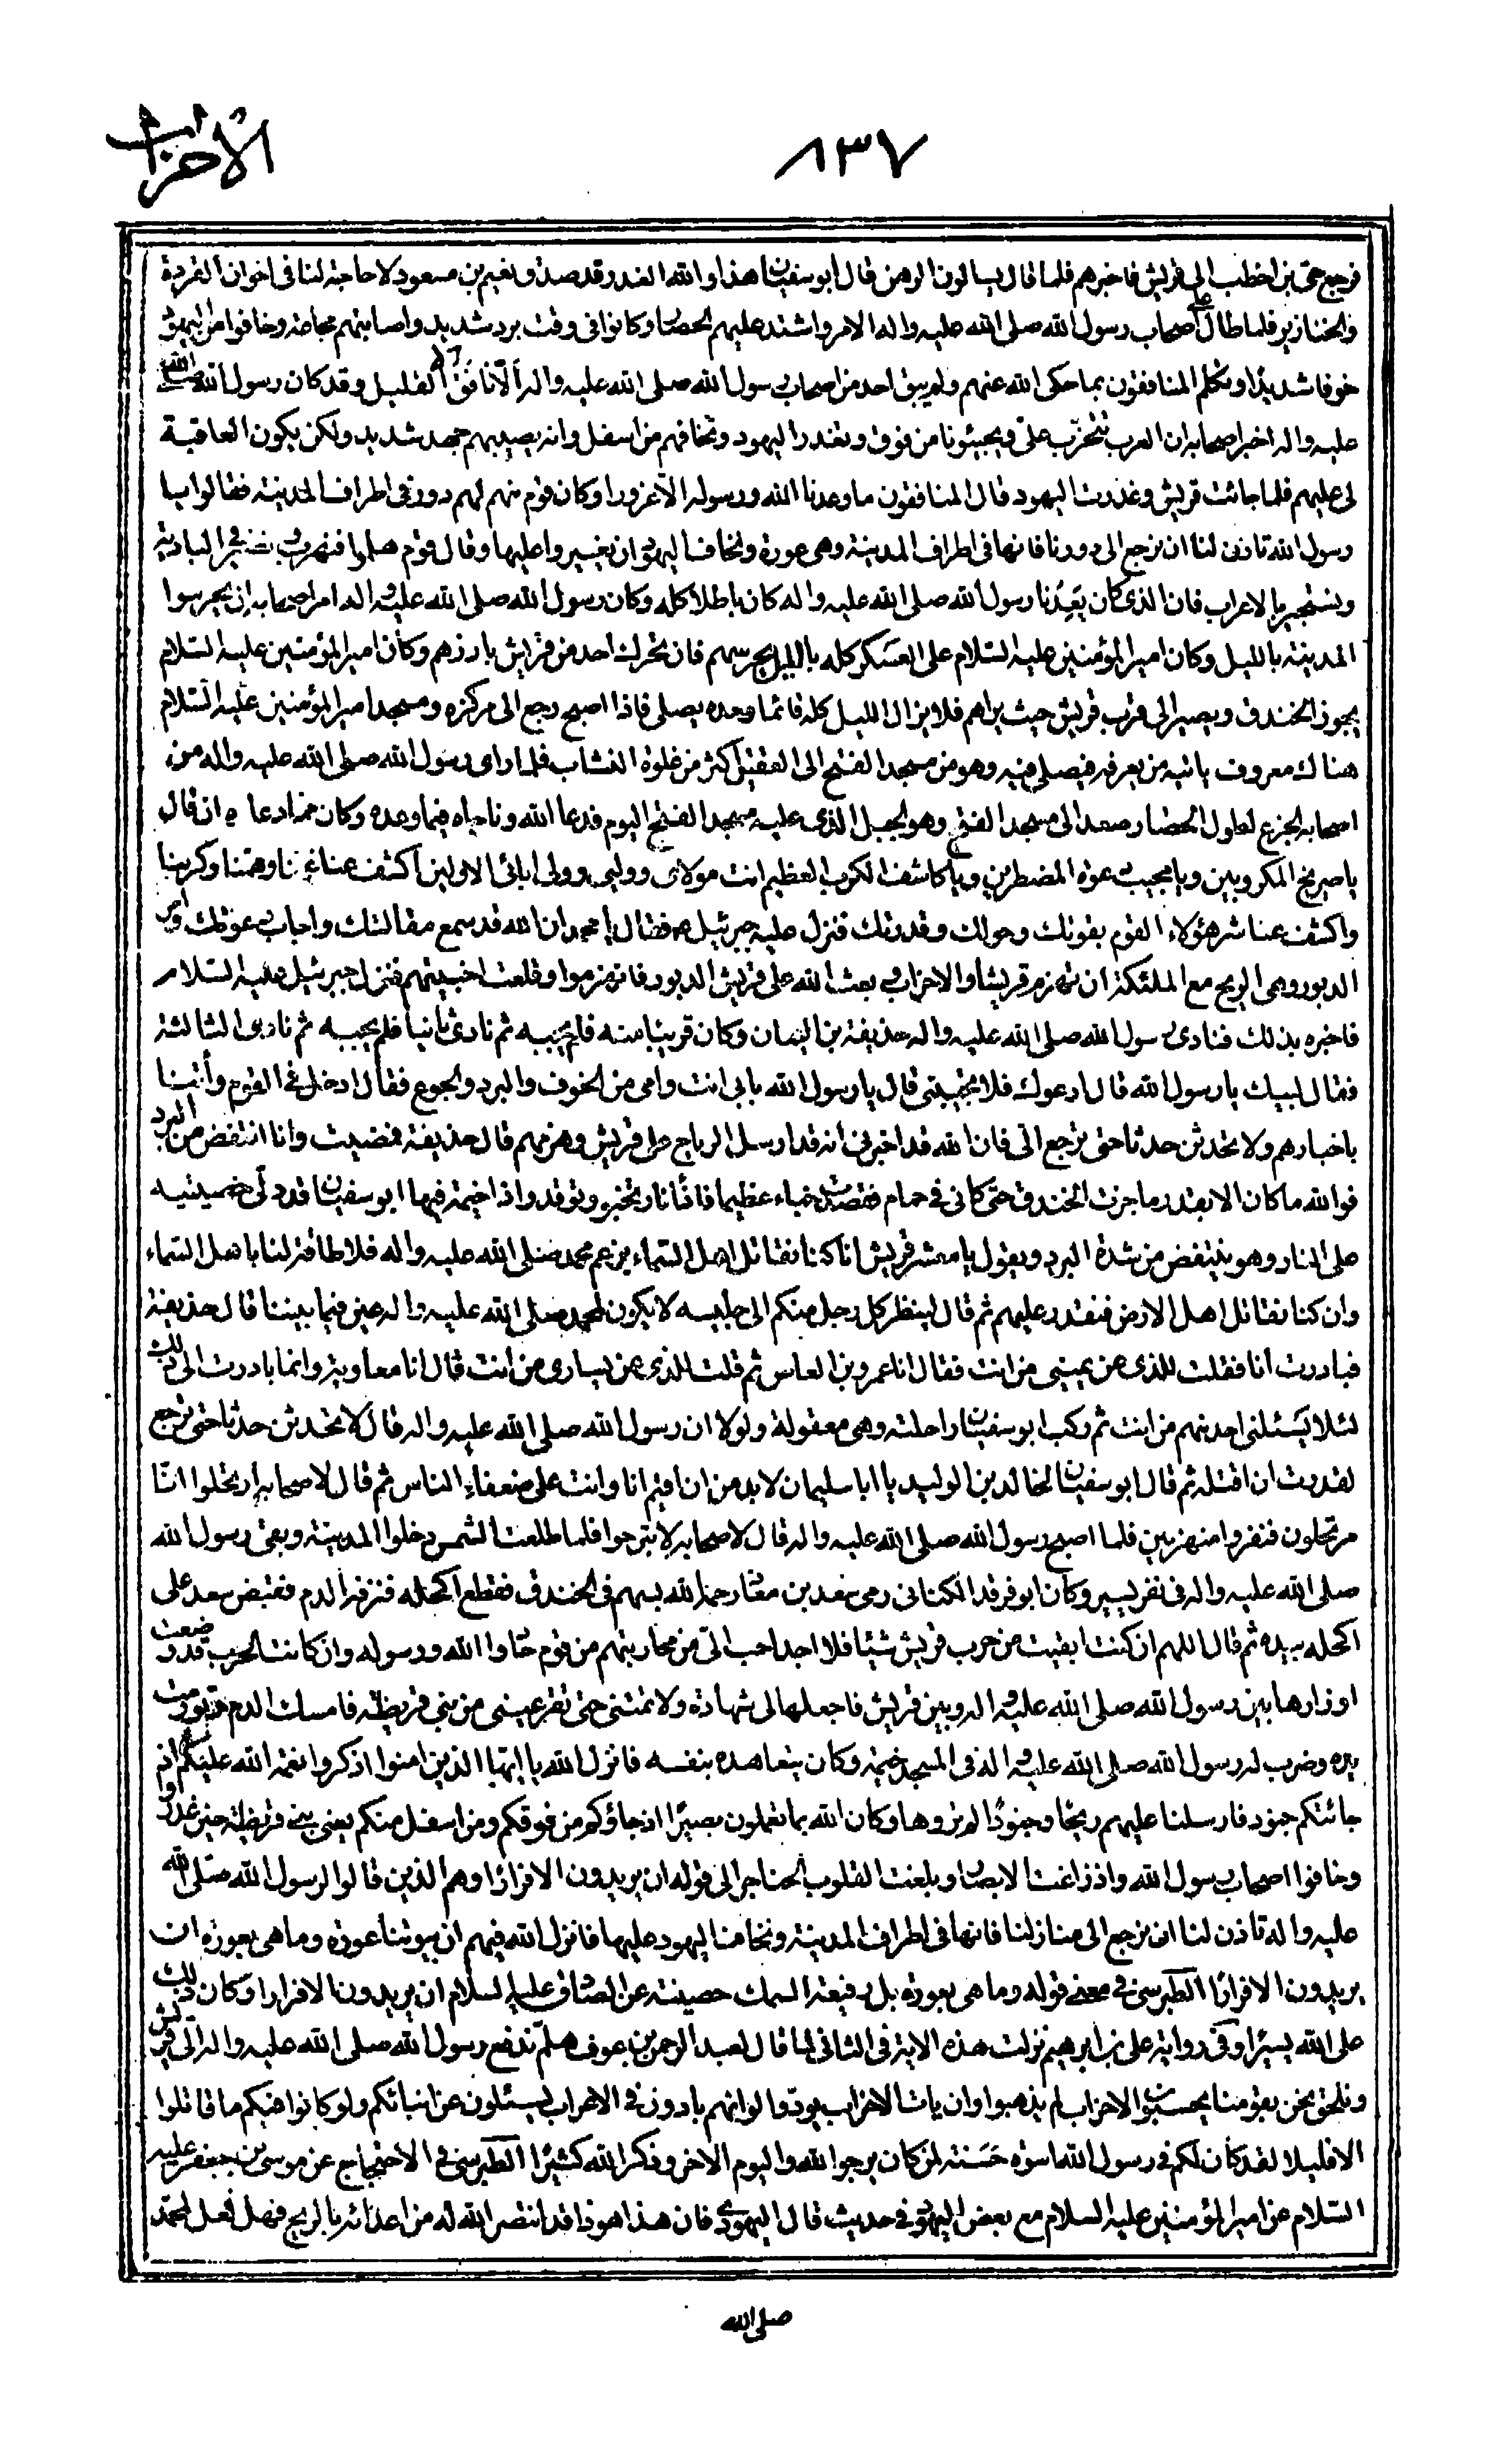 الاحزاب
٨٣٧
فرجع حى بن اخطب الى قريش فاخبرهم فلما قال يسالون الرهن قال ابو سفيان هذا والله الغدر وقد صدق نعيم بن مسعود لا حاجة لنا فى اخوان القردة
والخنازير فلما طال على اصحاب رسول الله صلى الله عليه واله الامر واشتد عليهم الحصار وكانوا فى وقت برد شديد واصابتهم مجاعة وخافوا من اليهود
خوفا شديدا وتكلم المنافقون بما حكى الله عنهم ولم يبق احد من اصحاب رسول الله صلى الله عليه واله الّا نافق الا القليل وقد كان رسول الله صلى الله
عليه واله اخبر اصحابه ان العرب تتحزّب علىّ ويجيئونا من فوق وتغدر اليهود ونخافهم من اسفل وانه يصيبهم جهد شديد ولكن يكون العاقبة
لى عليهم فلما جائت قريش وغدرت اليهود قال المنافقون ما وعدنا الله ورسوله الّا غرورا وكان قوم منهم لهم دور فى اطراف المدينة فقالوا يا
رسول الله تاذن لنا ان نرجع الى دورنا فانها فى اطراف المدينة وهى عورة ونخاف اليهود ان يغيروا عليها وقال قوم هلموا فنهرب ونصير فى البادية
ونستجير بالاعراب فان الذى كان يَعِدُنا رسول الله صلى الله عليه واله كان باطلا كله وكان رسول الله صلى الله عليه واله امر اصحابه ان يحرسوا
المدينة بالليل وكان امير المؤمنين عليه السلام على العسكر كله بالليل يحرسهم فان تحرك احد من قريش بارزهم وكان امير المؤمنين عليه السلام
يجوز الخندق ويصير الى قرب قريش حيث يراهم فلا يزال الليل كله قائما وحده يصلى فاذا اصبح رجع الى مركزه ومسجد امير المؤمنين عليه السلام
هناك معروف ياتيه من يعرفه فيصلى فيه وهو من مسجد الفتح الى العقيق اكثر من غلوة النشاب فلما راى رسول الله صلى الله عليه واله من
اصحابه الجزع لطول الحصار صعد الى مسجد الفتح وهو الجبل الذى عليه مسجد الفتح اليوم فدعا الله وناجاه فيما وعده وكان مما دعا ه ان قال
يا صريخ المكروبين ويا مجيب دعوة المضطرين ويا كاشف الكرب العظيم انت مولاى ووليى وولى ابائى الاولين اكشف عنا غمنا وهمنا وكربنا
واكشف عنا شر هؤلاء القوم بقوتك وحولك وقدرتك فنزل عليه جبرئيل ع فقال يا محمد ان الله قد سمع مقالتك واجاب دعوتك وامر
الدبور وهى الريح مع الملئكة ان تهزم قريشا والاحزاب وبعث الله على قريش الدبور فانهزموا وقلعت اخبيتهم فنزل جبرئيل عليه السلام
فاخبره بذلك فنادى رسول الله صلى الله عليه واله حذيفة بن اليمان وكان قريبا منه فلم يجبه ثم نادى ثانيا فلم يجبه ثم نادى الثالثة
فقال لبيك يا رسول الله قال ادعوك فلا تجيبنى قال يا رسول الله بابى انت وامى من الخوف والبرد والجوع فقال ادخل فى القوم وأتنا
باخبارهم ولا تحدثن حدثا حتى ترجع الىّ فان الله قد اخبرنى انه قد ارسل الرياح على قريش وهزمهم قال حذيفة فمضيت وانا انتفض من البرد
فوالله ما كان الا بقدر ما جزت الخندق حتى كانى فى حمام فقصدت خباء عظيما فاذا نار تخبو وتوقد واذا خيمة فيها ابو سفيان قد دلّى خصيتيه
على النار وهو ينتفض من شدة البرد ويقول يا معشر قريش ان كنا نقاتل اهل السماء بزعم محمد صلى الله عليه واله فلا طاقة لنا باهل السماء
وان كنا نقاتل اهل الارض فنقدر عليهم ثم قال لينظر كل رجل منكم الى جليسه لا يكون لمحمد صلى الله عليه واله عين فيما بيننا قال حذيفة
فبادرت انا فقلت للذى عن يمينى من انت فقال انا عمرو بن العاص ثم قلت للذى عن يسارى من انت قال انا معاوية وانما بادرت الى ذلك
لئلا يَسئلنى احد منهم من انت ثم ركب ابو سفيان راحلته وهى معقولة ولولا ان رسول الله صلى الله عليه واله قال لا تحدثن حدثا حتى ترجع
لقدرت ان اقتله ثم قال ابو سفيان لخالد بن الوليد يا ابا سليمان لا بد من ان اقيم انا وانت على ضعفاء الناس ثم قال لاصحابه ارتحلوا انّا
مرتحلون فنفروا منهزمين فلما اصبح رسول الله صلى الله عليه واله قال لاصحابه لا تبرحوا فلما طلعت الشمس دخلوا المدينة وبقى رسول الله
صلى الله عليه واله فى نفر يسير وكان ابو فرقد الكنانى رمى سعد بن معاذ رحمه الله بسهم فى الخندق فقطع اكحله فنزفه الدم فقبض سعد على
اكحله بيده ثم قال اللهم ان كنت ابقيت من حرب قريش شيئا فلا اجد احب الىّ من محاربتهم من قوم حادوا الله ورسوله وان كانت الحرب قد وضعت
اوزارها بين رسول الله صلى الله عليه واله وبين قريش فاجعلها لى شهادة ولا تمتنى حتى تقر عينى من بنى قريظة فامسك الدم وتورمت
يده وضرب له رسول الله صلى الله عليه واله فى المسجد خيمة وكان يتعاهده بنفسه فانزل الله يا ايها الذين امنوا اذكروا نعمة الله عليكم اذ
جائتكم جنود فارسلنا عليهم ريحًا وجنودًا لم تروها وكان الله بما تعملون بصيرًا اذ جاؤكم من فوقكم ومن اسفل منكم يعنى بنى قريظة حين غدروا
وخافوا اصحاب رسول الله واذ زاغت الابصار وبلغت القلوب الحناجر الى قوله ان يريدون الا فرارًا وهم الذين قالوا لرسول الله صلى الله
عليه واله تاذن لنا ان نرجع الى منازلنا فانها فى اطراف المدينة ونخاف اليهود عليها فانزل الله فيهم ان بيوتنا عورة وما هى بعورة ان
يريدون الا فرارًا الطبرسى فى معنى قوله وما هى بعورة بل رفيعة السمك حصينة عن الصادق عليه السلام ان يريدون الا فرارا وكان ذلك
على الله يسيرًا وفى رواية على بن ابرهيم نزلت هذه الاية فى الثانى لما قال لعبد الرحمن بن عوف هلمّ ندفع رسول الله صلى الله عليه واله الى قريش
ونلحق نحن بقومنا يحسبون الاحزاب لم يذهبوا وان يات الاحزاب يودّوا لو انهم بادون فى الاعراب يسئلون عن انبائكم ولو كانوا فيكم ما قاتلوا
الا قليلا لقد كان لكم فى رسول الله اسوة حَسَنة لمن كان يرجوا الله واليوم الاخر وذكر الله كثيرًا الطبرسى فى الاحتجاج عن موسى بن جعفر عليه
السّلام عن امير المؤمنين عليه السلام مع بعض اليهود فى حديث قال اليهودى فان هذا هود قد انتصر الله له من اعدائه بالريح فهل فعل لمحمّد
صلى الله